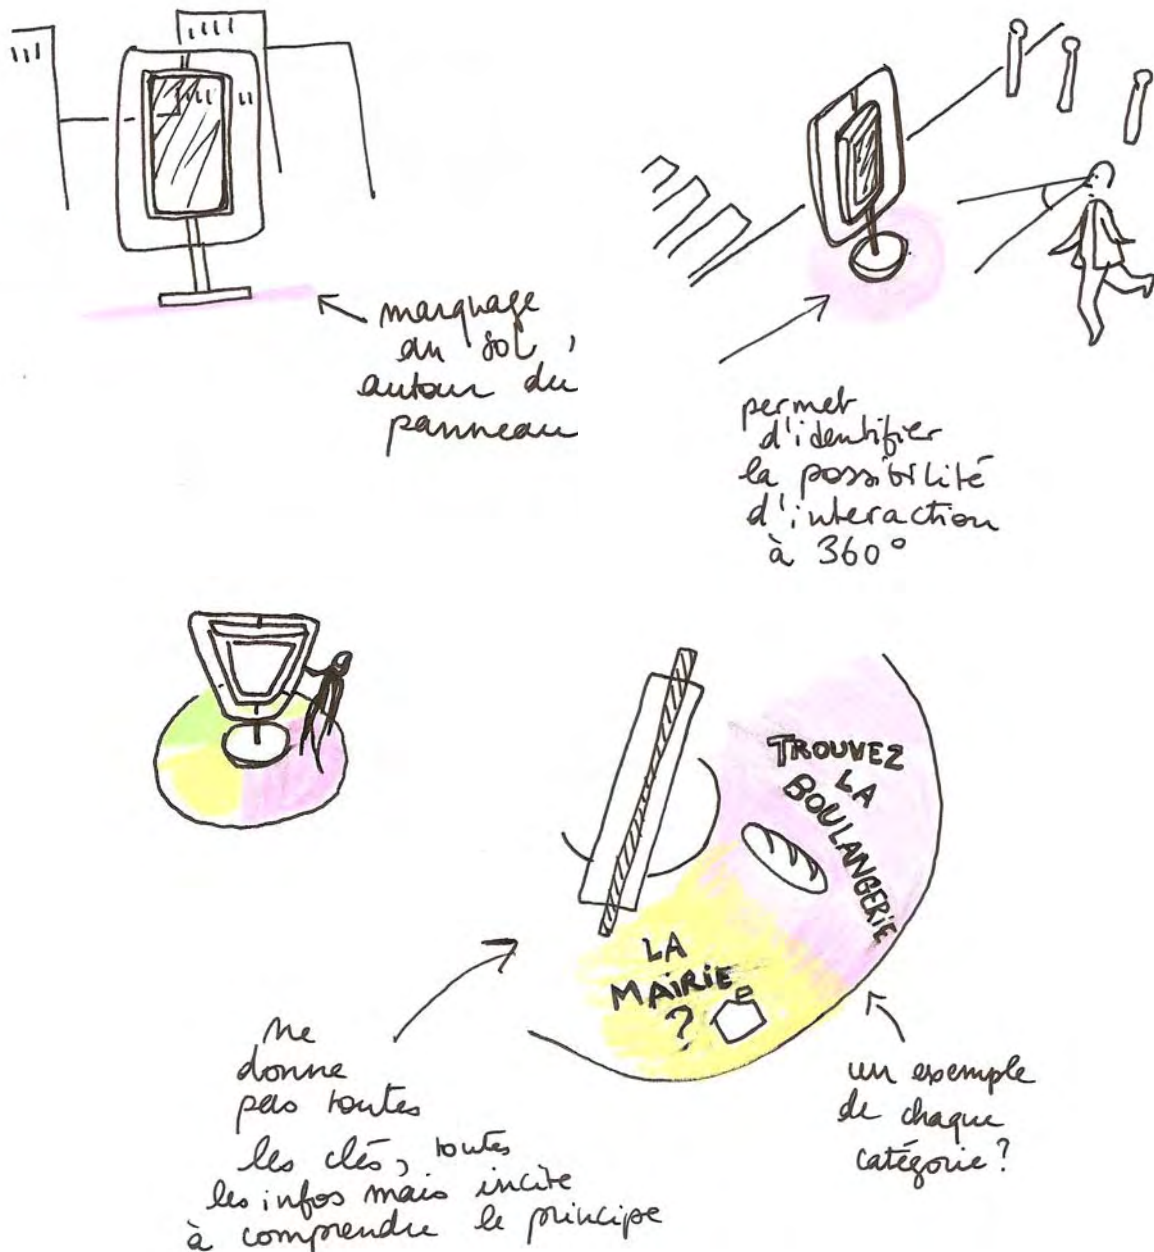 marquage
au sol,
autour du
panneau
permet
d'identifier
la possibilité
d'interaction
à 360°
TROUVEZ
LA
BOULANGERIE
LA
MAIRIE
?
ne
donne
pas toutes
les clés, toutes
les infos mais incite
à comprendre le principe
un exemple
de chaque
catégorie?